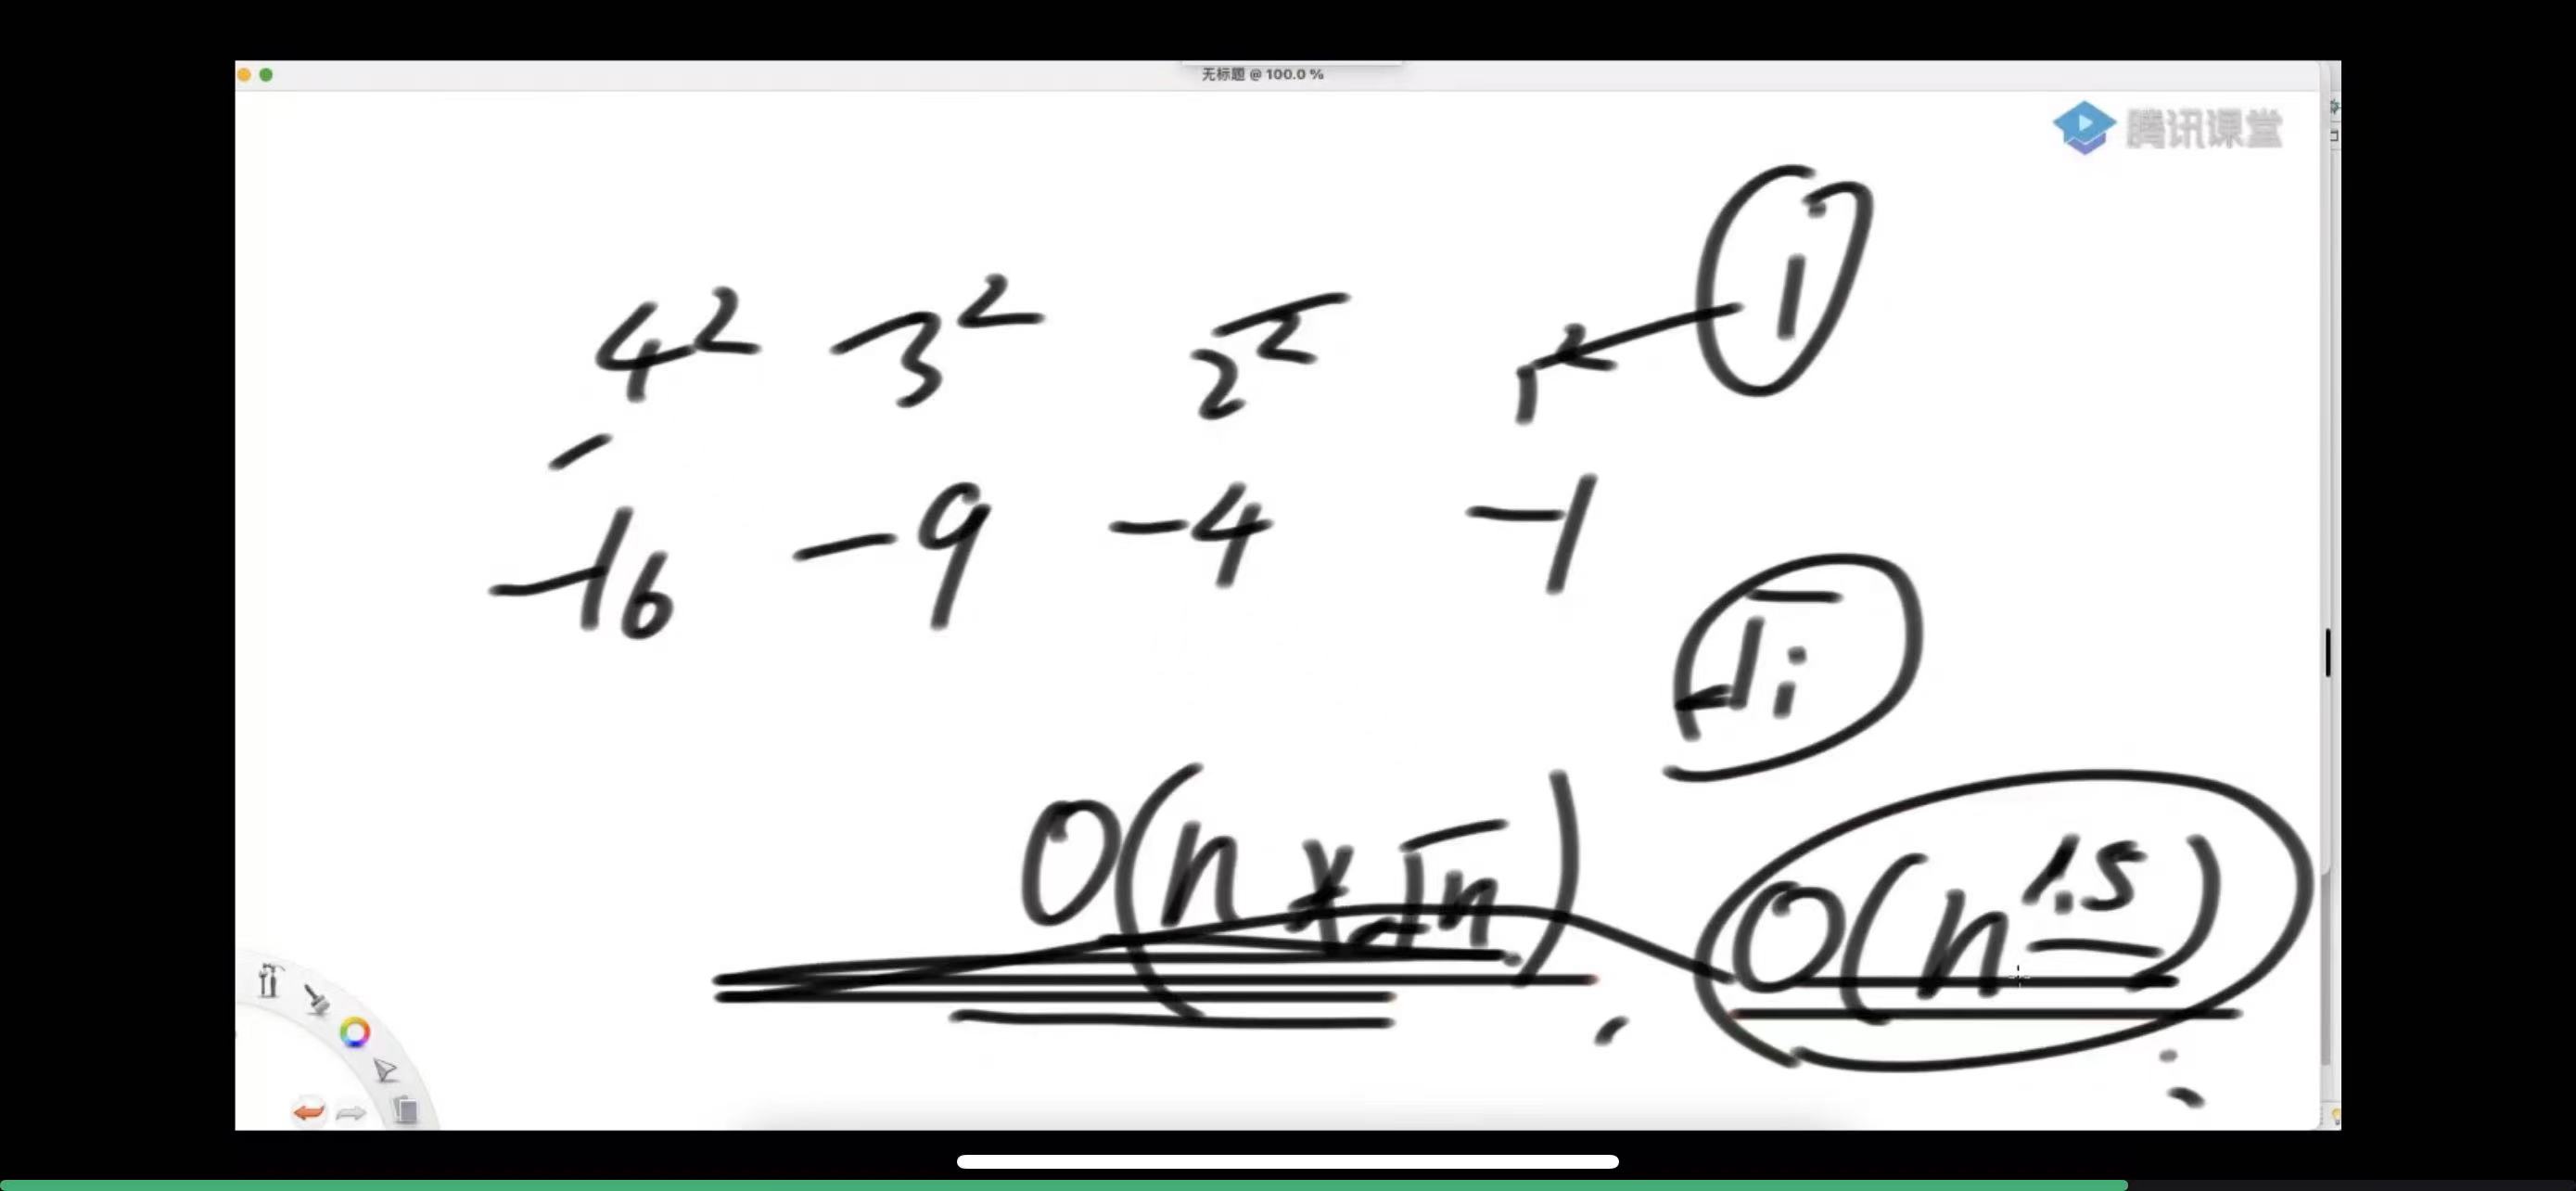 无标题 @ 100.0 %
腾讯课堂
4² 3² 2² 1² i
-16 -9 -4 -1
√i
O(n × √n) O(n^1.5)